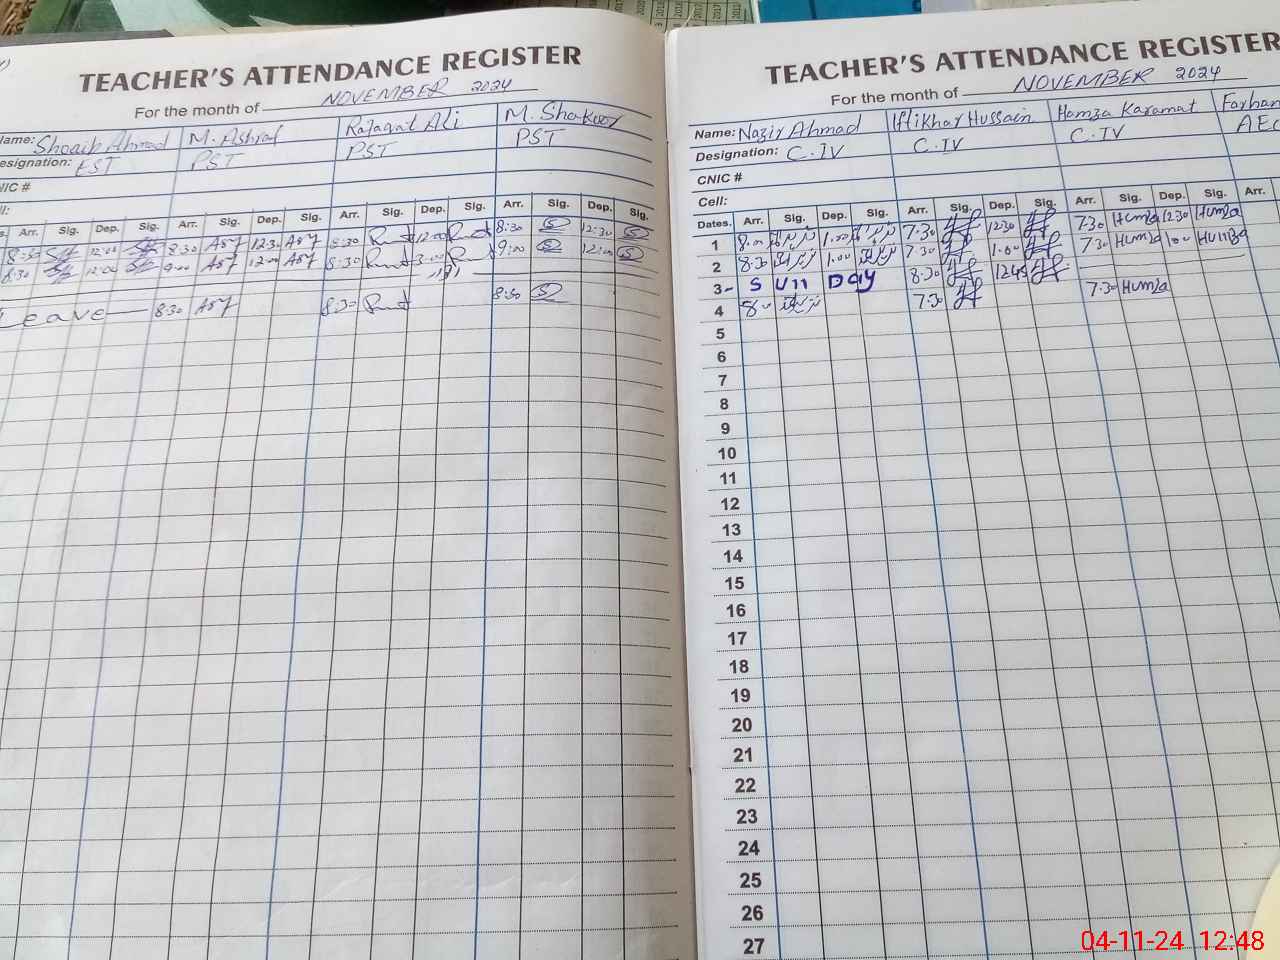 TEACHER'S ATTENDANCE REGISTER
For the month of NOVEMBER 2024
Name: Shoaib Ahmad M. Ashraf Rafaqat Ali M. Shakoor
Designation: EST PST PST PST
CNIC #
Cell:
Arr. Sig. Dep. Sig. Arr. Sig. Dep. Sig. Arr. Sig. Dep. Sig. Arr. Sig. Dep. Sig.
8:30 12:00 8:30 12:30 8:30 12:00 8:30 12:30
8:30 12:00 9:00 12:00 8:30 3:00 9:00 12:00
اتوار
Leave 8:30 8:30 8:30
TEACHER'S ATTENDANCE REGISTER
For the month of NOVEMBER 2024
Name: Nazir Ahmad Iftikhar Hussain Hamza Karamat Farhan
Designation: C.IV C.IV C.IV
CNIC #
Cell:
Dates. Arr. Sig. Dep. Sig. Arr. Sig. Dep. Sig. Arr. Sig. Dep. Sig. Arr.
1 8.00 1.00 7.30 12:30 7.30 Humza 12:30 Humza
2 8:30 1.00 7.30 1.00 7.30 Humza 1.00 Humza
3- Sun Day 8:30 1245
4 8.00 7.30 7.30 Humza
5
6
7
8
9
10
11
12
13
14
15
16
17
18
19
20
21
22
23
24
25
26
27
04-11-24 12:48